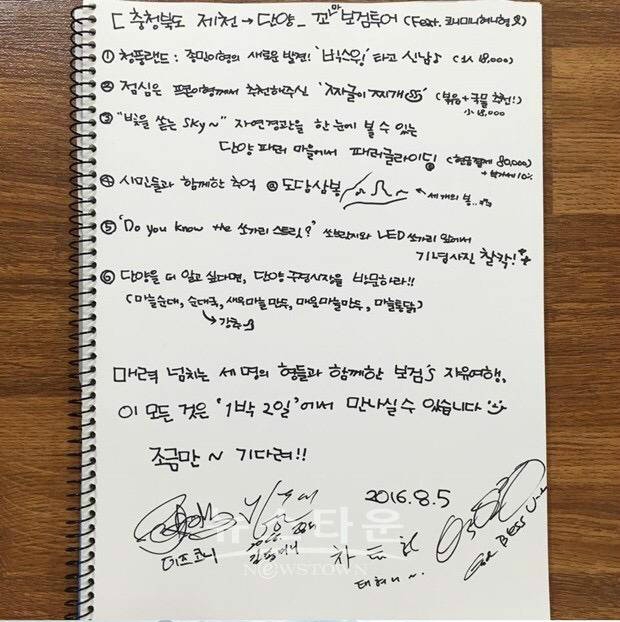 [ 충청북도 제천 → 단양_ 꼬마보검투어 (Feat.
① 청풍랜드 : 종민이형의 새로운 발견! '빅스윙' 타고 신남♪ (1人 18,000)
② 점심은 프콘이형께서 추천해주신 '짜글이 찌개' (볶음+국물 추천!)
小 18,000
③ "빛을 쏟는 Sky~" 자연경관을 한 눈에 볼 수 있는
단양 파러 마을에서 패러글라이딩! (현금결제 80,000)
+ 부가세 10%
④ 시민들과 함께한 추억 @ 도담삼봉 ← 세 개의 봉..
⑤ 'Do you know the 쏘가리 스트릿?' 쏘브라치와 LED 쏘가리 앞에서
기념사진 찰칵!
⑥ 단양을 더 알고 싶다면, 단양 구경시장을 방문하라!!
(마늘순대, 순대국, 새우마늘만두, 매운마늘만두, 마늘통닭)
↳ 강추
매력 넘치는 세 명의 형들과 함께한 보검's 자유여행,
이 모든 것은 '1박 2일'에서 만나실 수 있습니다
조금만 ~ 기다려!!
2016.8.5
데프코니
차 태 현
태혀니~.
God BLESS U~
뉴스타운
NEWSTOWN